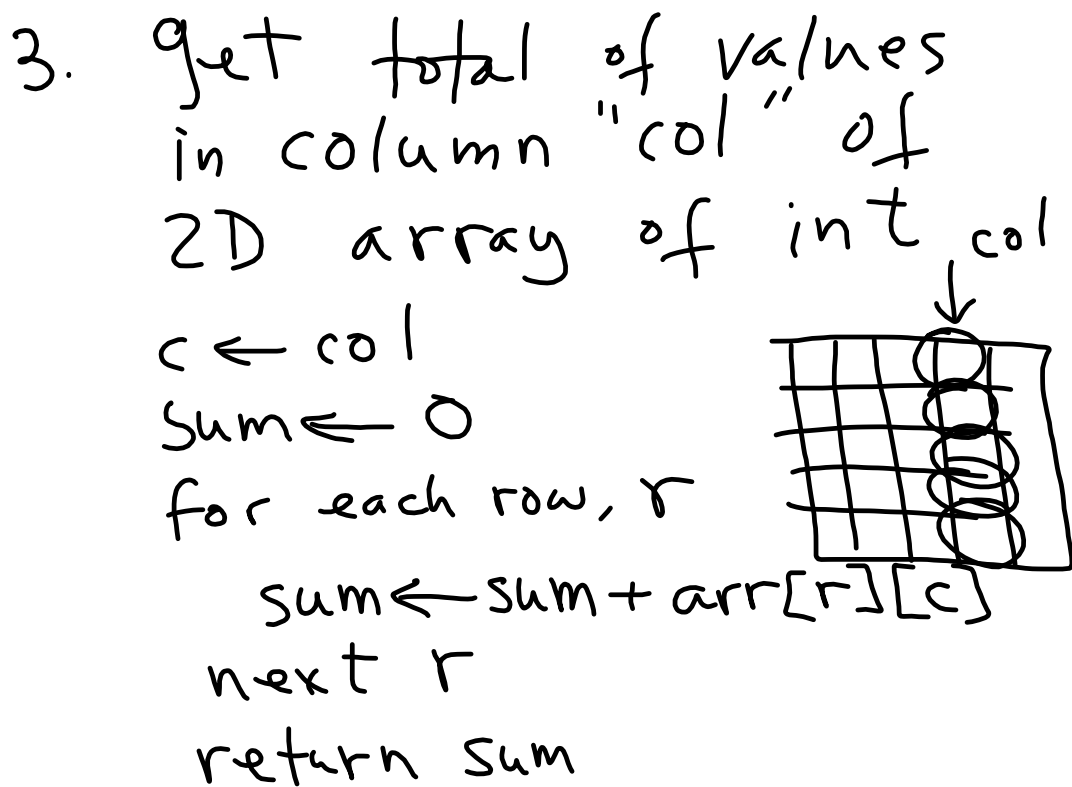 3. get total of values
in column "col" of
2D array of int
col
c ← col
sum ← 0
for each row, r
sum ← sum + arr[r][c]
next r
return sum